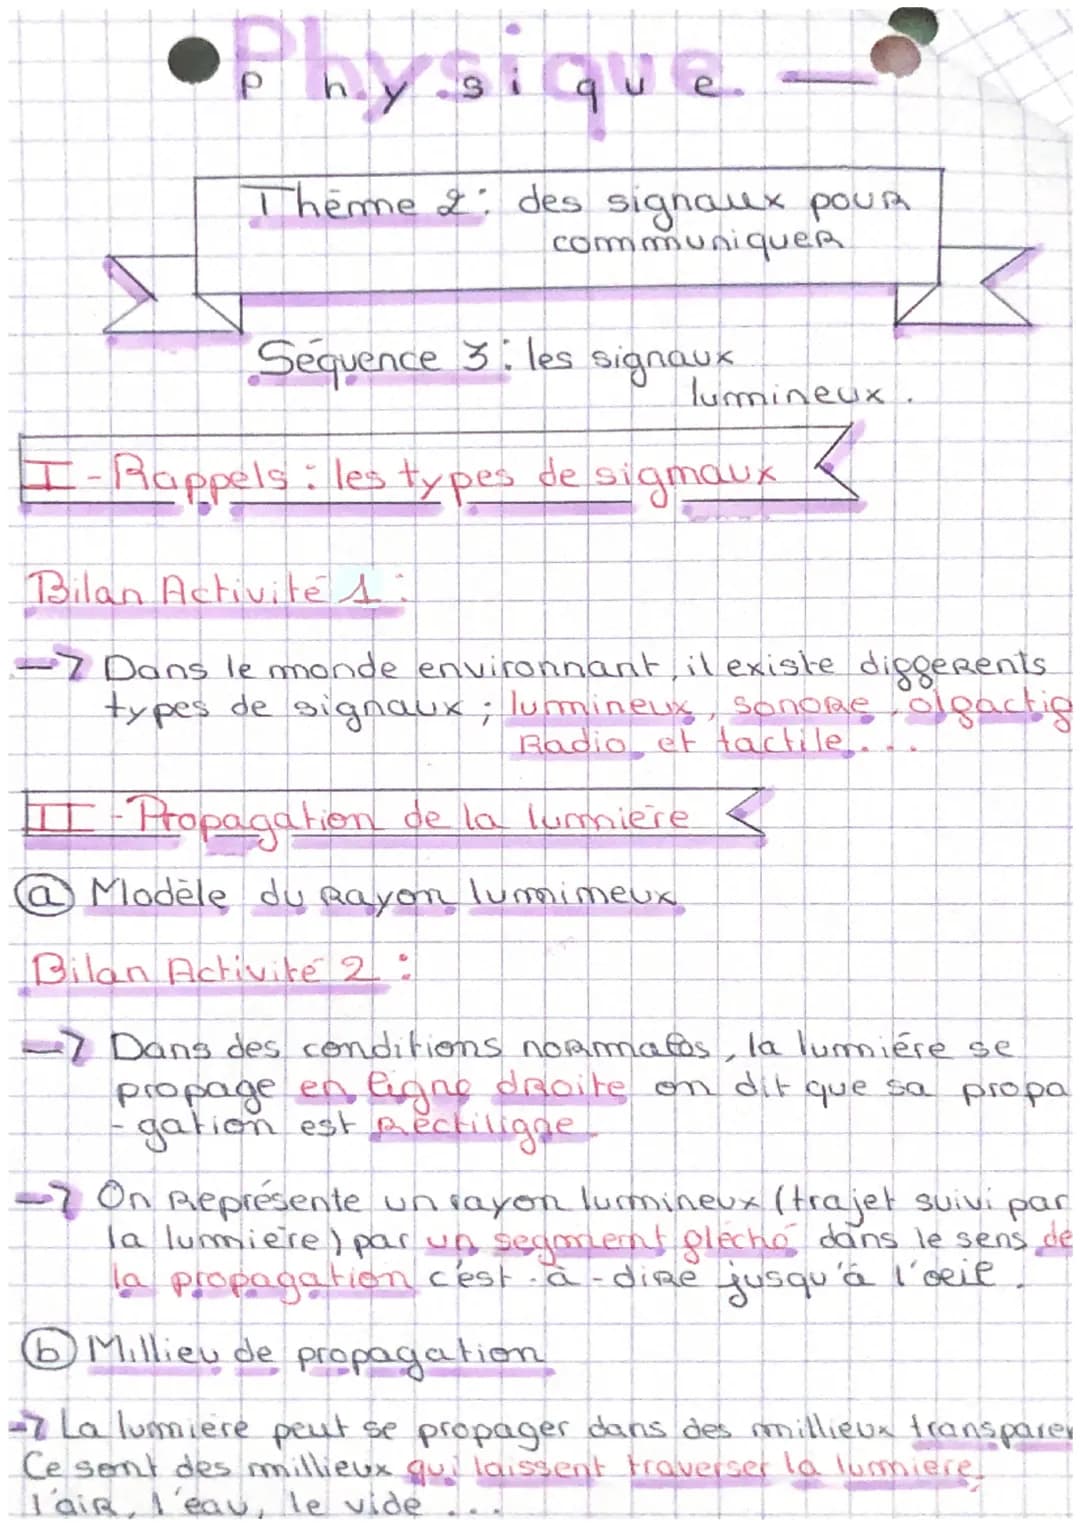 Physique.
Physique.
Thème 2 : des signaux pour
communiquer
Séquence 3 : les signaux
lumineux.
I - Rappels : les types de sigmaux
Bilan Activité 1 :
→ Dans le monde environnant, il existe differents
types de signaux ; lumineux, sonore, olfactif
Radio et tactile...
II - Propagation de la lumière
a Modèle du rayon lumimeux
Bilan Activité 2 :
→ Dans des conditions normales, la lumiére se
propage en ligne droite on dit que sa propa
- gation est rectiligne.
→ On Représente un rayon lumineux (trajet suivi par
la lumière) par un segment fléché dans le sens de
la propagation c'est-à-dire jusqu'à l'oeil.
b Millieu de propagation
→ La lumière peut se propager dans des millieux transparen
Ce sont des millieux qui laissent traverser la lumière,
l'air, l'eau, le vide ...